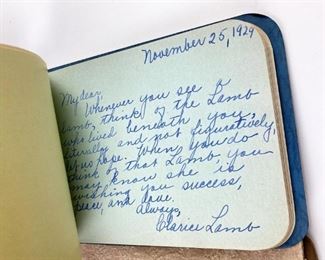 November 25, 1929
My dear,
Whenever you see a
lamb, think of the Lamb
who lived beneath you,
literally and not figuratively,
let us hope. When you do
think of that Lamb, you
may know she is
wishing you success,
peace, and love.
Always,
Clarice Lamb